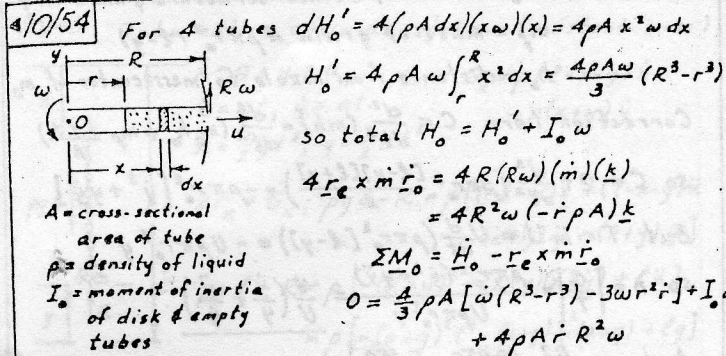 4/10/54
For 4 tubes dH₀' = 4(ρA dx)(xω)(x) = 4ρA x²ω dx
H₀' = 4ρAω∫ᵣᴿ x² dx = 4ρAω/3 (R³-r³)
so total H₀ = H₀' + I₀ω
4 r̲ₑ x ṁ ṙ̲₀ = 4R(Rω)(ṁ)(k)
= 4R²ω(-ṙρA)k̲
ΣM̲₀ = Ḣ̲₀ - r̲ₑ x ṁ ṙ̲₀
0 = 4/3 ρA[ω̇(R³-r³) - 3ωr²ṙ] + I₀
+ 4ρAṙR²ω
y
R
r
Rω
ω
O
u
x
dx
A = cross-sectional
area of tube
ρ = density of liquid
I₀ = moment of inertia
of disk & empty
tubes